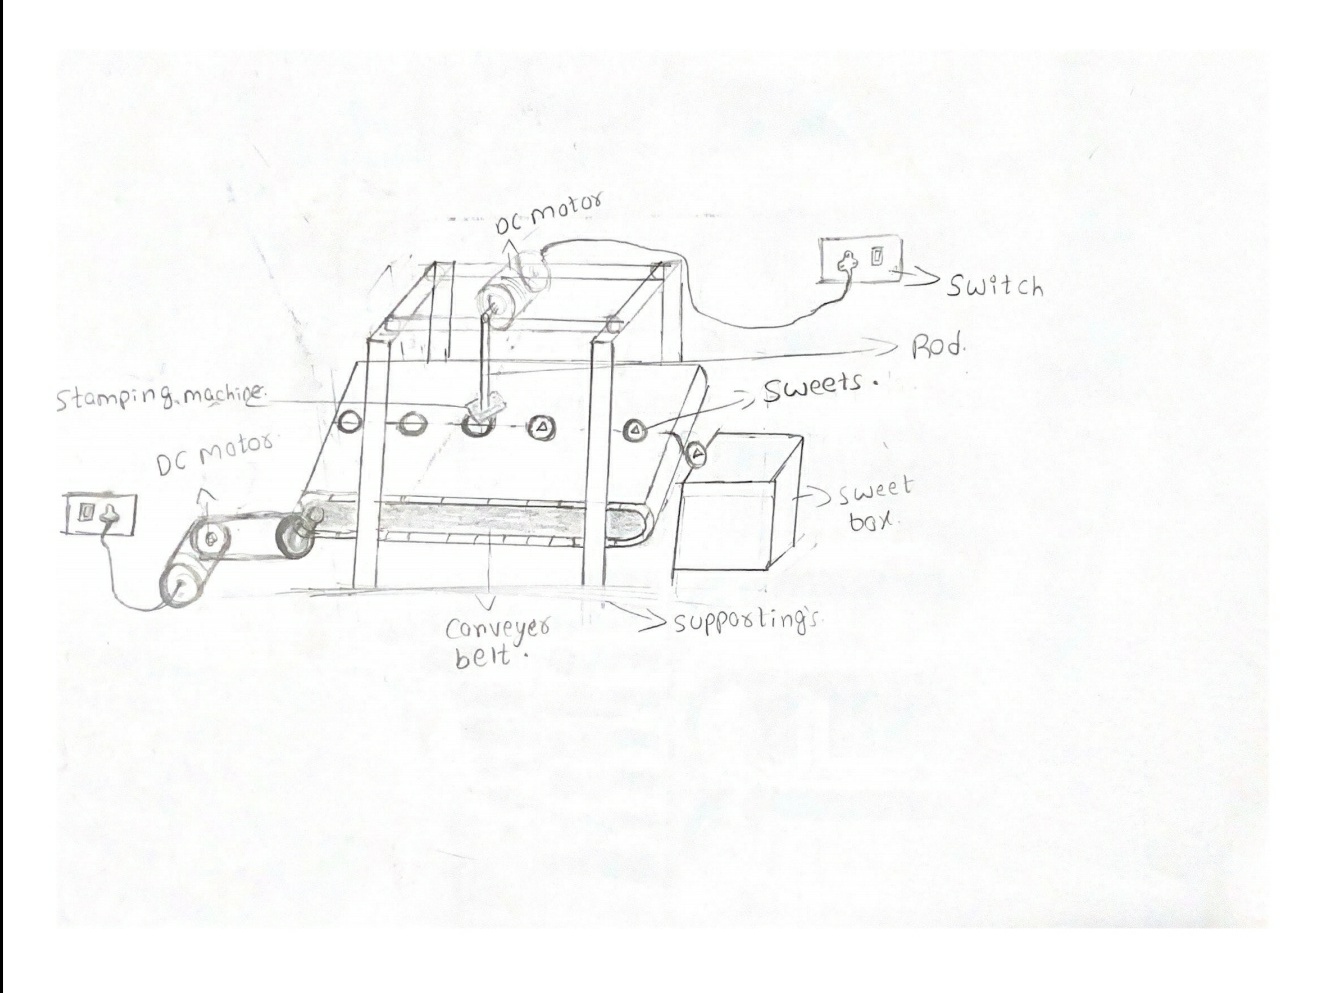 DC motor
Switch
Rod.
Stamping machine.
Sweets.
DC motor
Sweet
box.
Conveyer
belt.
Supporting's.